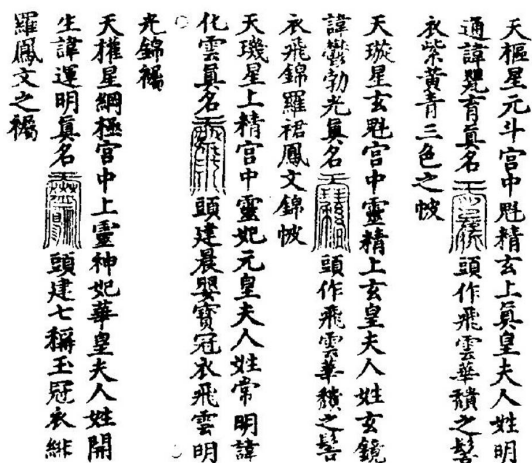 天樞星元斗宮中魁精玄上眞皇夫人姓明
通諱覺育眞名 頭作飛雲華䫌之髻
衣紫黃青三色之帔
天璇星玄魁宮中靈精上玄皇夫人姓玄鏡
諱欝勃光眞名 頭作飛雲華䫌之髻
衣飛錦羅裙鳳文錦帔
天璣星上精宮中靈妃元皇夫人姓常明諱
化雲眞名 頭建晨嬰寶冠衣飛雲明
光錦襡
天權星綱極宮中上靈神妃華皇夫人姓開
生諱運明眞名 頭建七稱玉冠衣緋
羅鳳文之襡